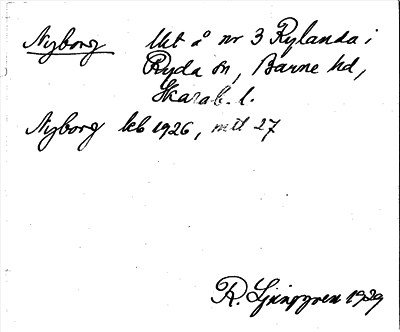 Nyborg Utt å nr 3 Rylanda i
Ryda sn, Barne hd,
Skarab. l.
Nyborg kb 1926, mtl 27
R. Ljunggren 1929